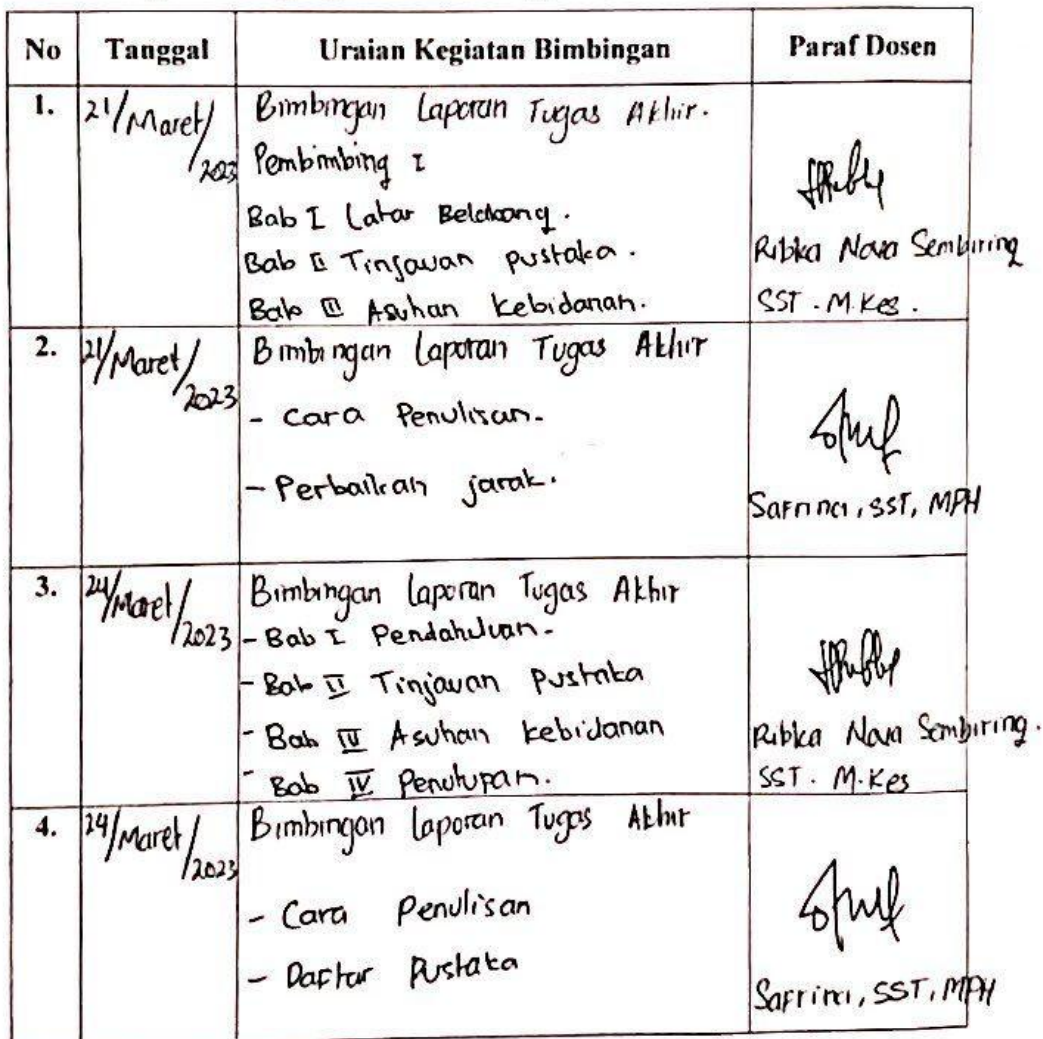 No Tanggal Uraian Kegiatan Bimbingan Paraf Dosen
1. 21/Maret/2023 Bimbingan Laporan Tugas Akhir.
Pembimbing I
Bab I Latar Belakang.
Bab II Tinjauan pustaka. Ribka Nova Sembiring
Bab III Asuhan kebidanan. SST. M.Kes.
2. 21/Maret/2023 Bimbingan Laporan Tugas Akhir
- Cara Penulisan.
- Perbaikan jarak.
Safrina, SST, MPH
3. 24/Maret/2023 Bimbingan Laporan Tugas Akhir
- Bab I Pendahuluan.
- Bab II Tinjauan Pustaka
- Bab IV Asuhan kebidanan Ribka Nova Sembiring.
- Bab IV Penutupan. SST. M.Kes
4. 24/Maret/2023 Bimbingan Laporan Tugas Akhir
- Cara Penulisan
- Daftar Pustaka
Safrina, SST, MPH